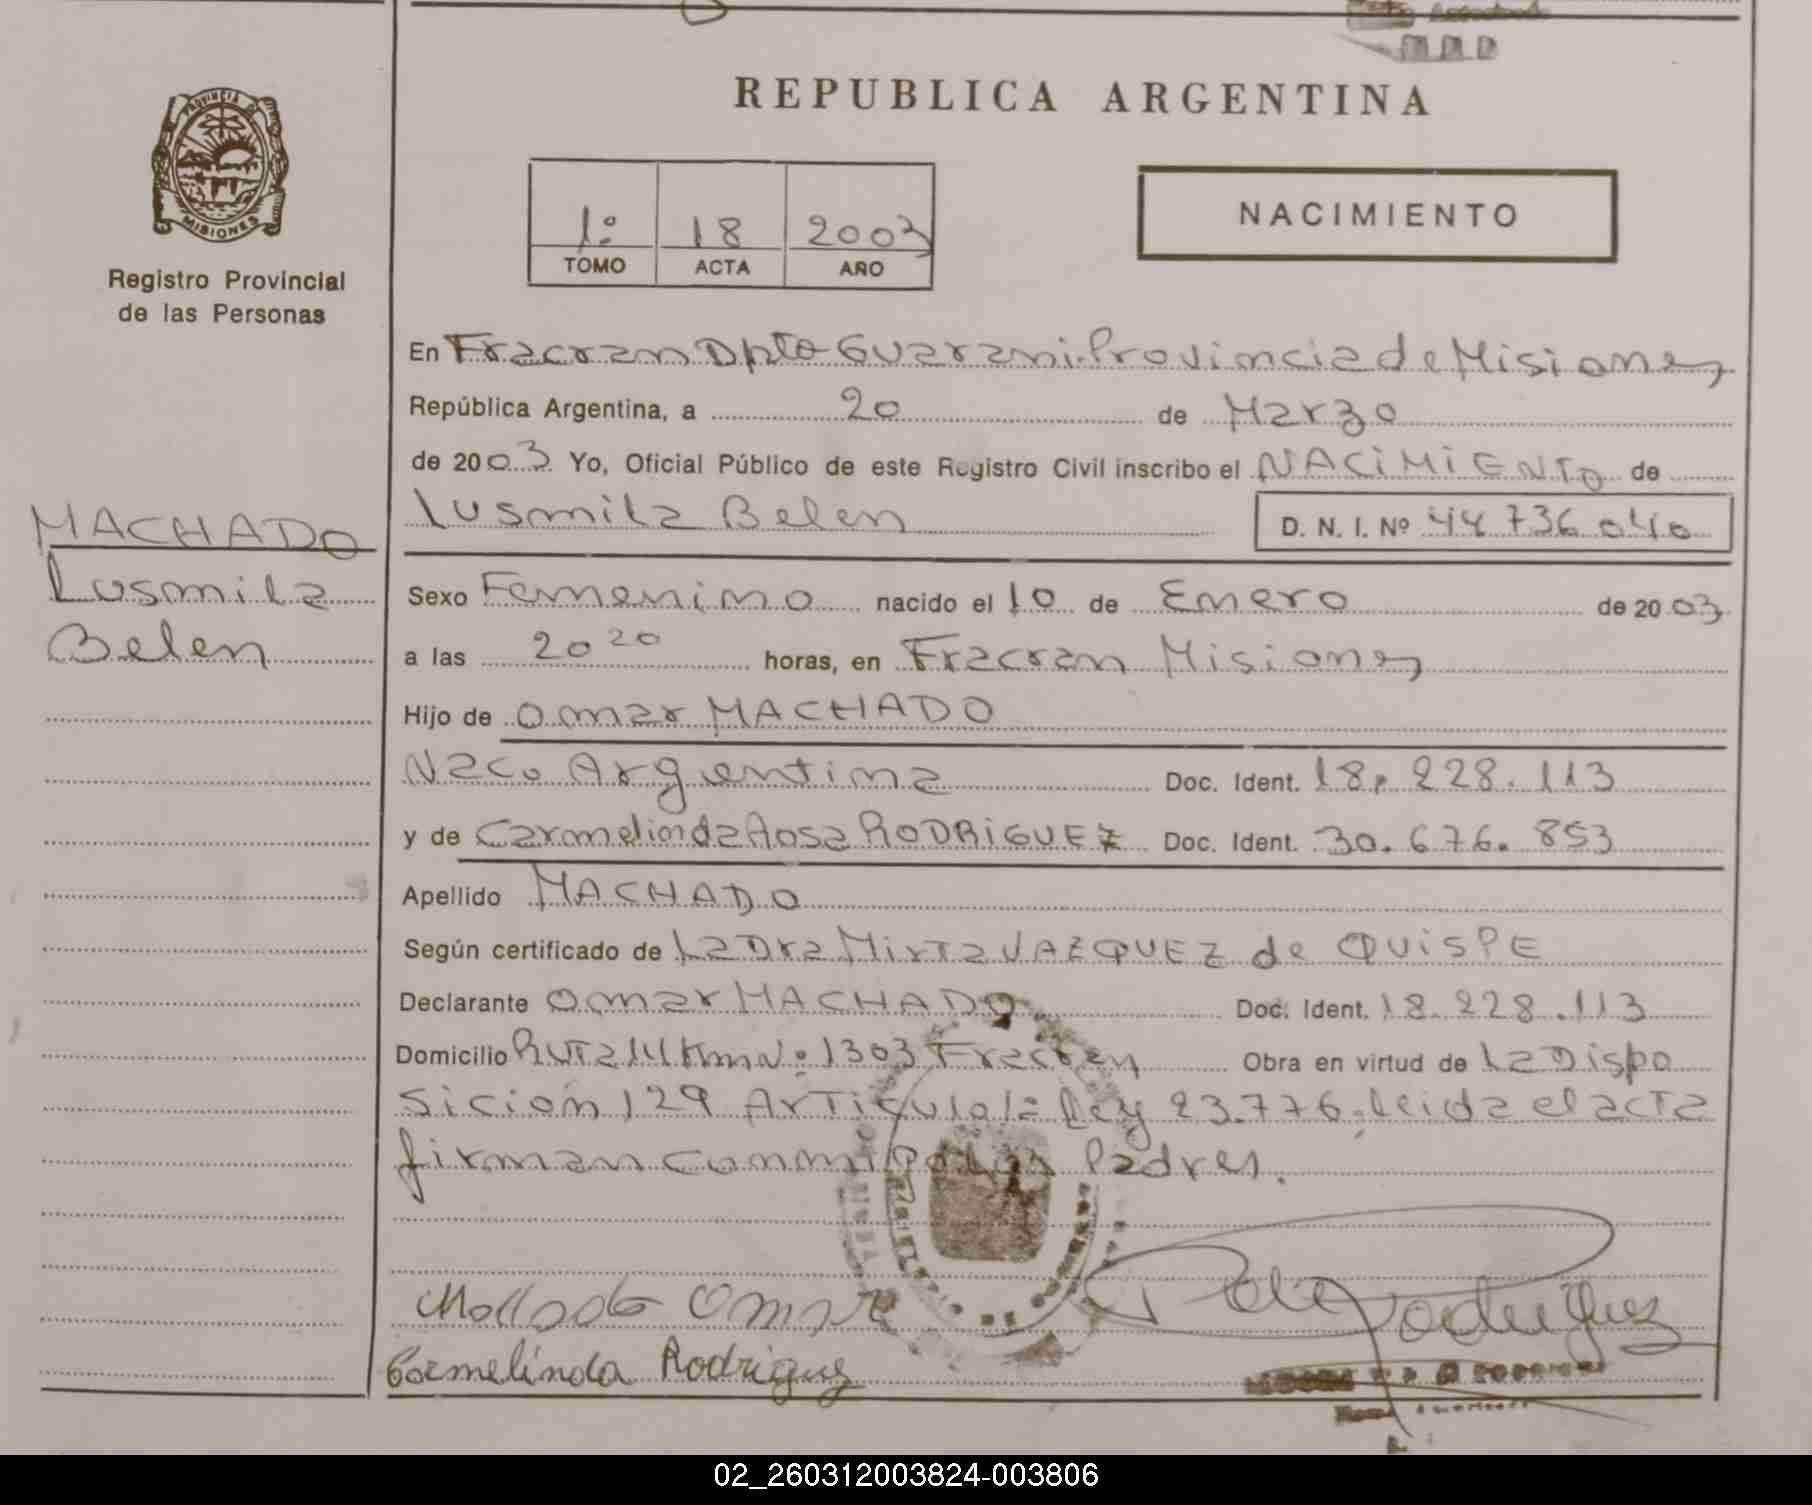 REPUBLICA ARGENTINA
PROVINCIA DE
MISIONES
Registro Provincial
de las Personas
1º 18 2003
TOMO ACTA AÑO
NACIMIENTO
En Fracran Dpto Guarani Provincia de Misiones
República Argentina, a 20 de Marzo
de 2003 Yo, Oficial Público de este Registro Civil inscribo el NACIMIENTO de
Lusmila Belen D. N. I. Nº 44.736.040
MACHADO
Lusmila
Belen
Sexo Femenino nacido el 10 de Enero de 2003
a las 20 20 horas, en Fracran Misiones
Hijo de Omar MACHADO
Naco Argentina Doc. Ident. 18.228.113
y de Carmelinda Rosa RODRIGUEZ Doc. Ident. 30.676.853
Apellido MACHADO
Según certificado de La Dra Mirta VAZQUEZ de QUISPE
Declarante Omar MACHADO Doc. Ident. 18.228.113
Domicilio Ruta 14 Km Nº 1303 Fracran Obra en virtud de La Dispo
sicion 129 Articulo 1º Ley 23.776. Leida el acta
firman conmigo los Padres.
Machado Omar
Carmelinda Rodriguez
Rodriguez
02_260312003824-003806